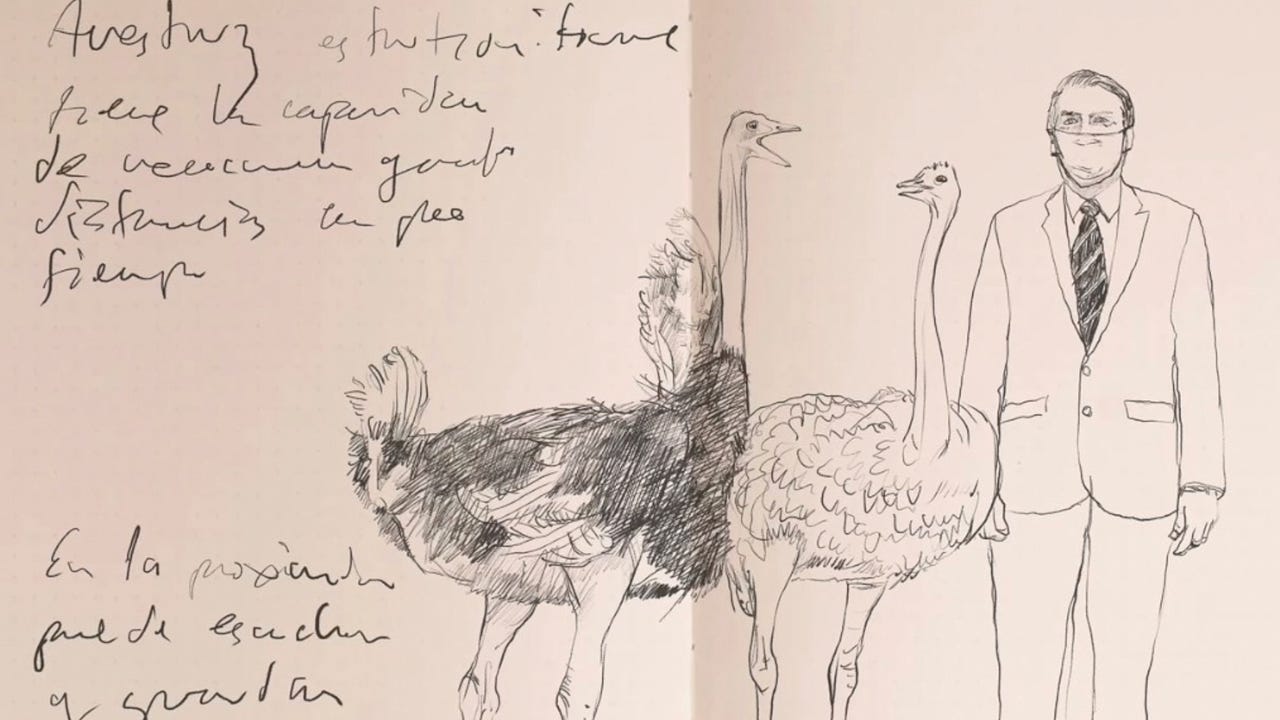 Avestruz
tiene la capacidad
de recorrer grandes
distancias en poco
tiempo
En la
puede escuchar
y guardar